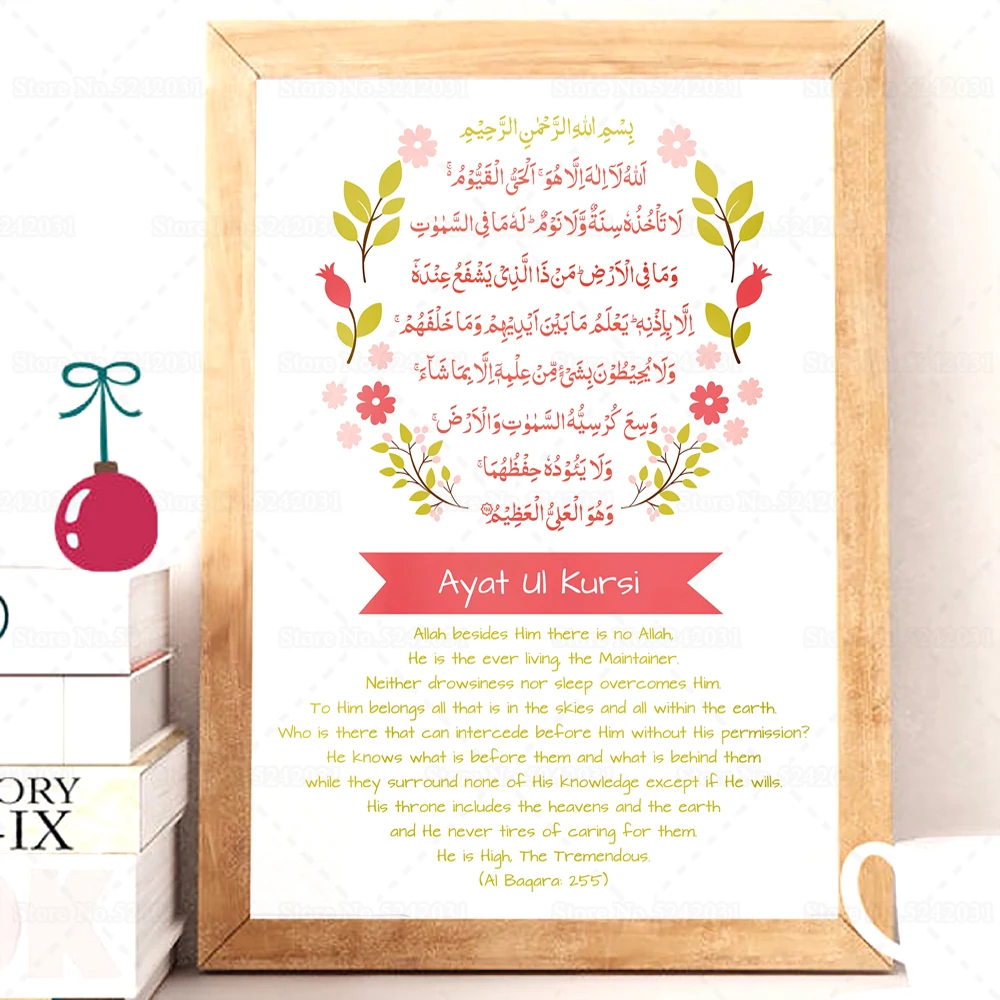 بِسْمِ اللهِ الرَّحْمٰنِ الرَّحِيْمِ
اَللهُ لَآ اِلٰهَ اِلَّا هُوَ ۚ اَلْحَيُّ الْقَيُّوْمُ ۚ
لَا تَاْخُذُهٗ سِنَةٌ وَّلَا نَوْمٌ ؕ لَهٗ مَا فِي السَّمٰوٰتِ
وَمَا فِي الْاَرْضِ ؕ مَنْ ذَا الَّذِيْ يَشْفَعُ عِنْدَهٗۤ
اِلَّا بِاِذْنِهٖ ؕ يَعْلَمُ مَا بَيْنَ اَيْدِيْهِمْ وَمَا خَلْفَهُمْ ۚ
وَلَا يُحِيْطُوْنَ بِشَيْءٍ مِّنْ عِلْمِهٖۤ اِلَّا بِمَا شَآءَ ۚ
وَسِعَ كُرْسِيُّهُ السَّمٰوٰتِ وَالْاَرْضَ ۚ
وَلَا يَـُٔوْدُهٗ حِفْظُهُمَا ۚ
وَهُوَ الْعَلِيُّ الْعَظِيْمُ ﴿۲۵۵﴾
Ayat Ul Kursi
Allah besides Him there is no Allah,
He is the ever living, the Maintainer.
Neither drowsiness nor sleep overcomes Him.
To Him belongs all that is in the skies and all within the earth.
Who is there that can intercede before Him without His permission?
He knows what is before them and what is behind them
while they surround none of His Knowledge except if He wills.
His throne includes the heavens and the earth
and He never tires of caring for them.
He is High, The Tremendous.
(Al Baqara: 255)
ORY
-IX
OK
Store No.5242031